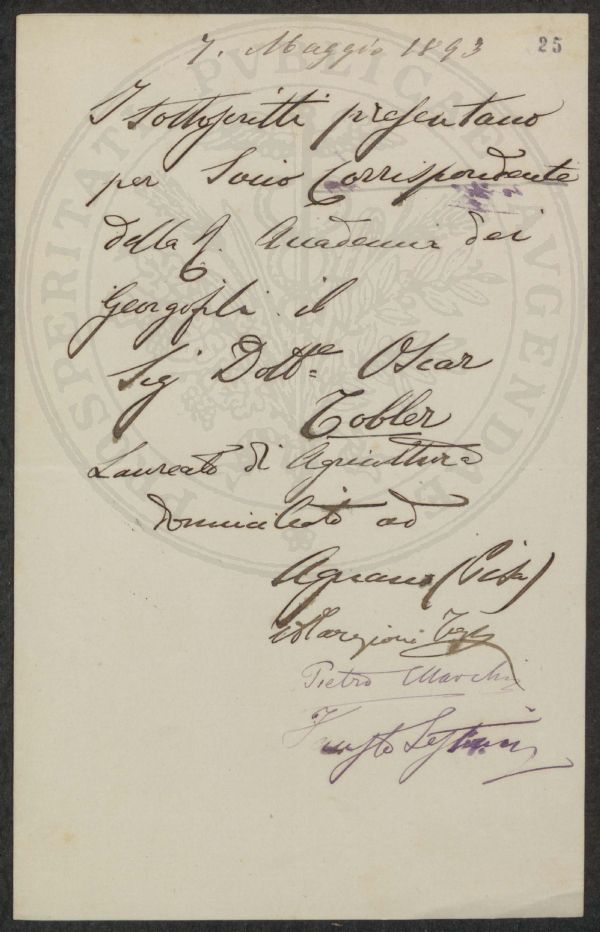 7. Maggio 1893
25
I sottoscritti presentano
per Socio Corrispondente
della R. Accademia dei
Georgofili il
Sig Dott.e Oscar
Tobler
Laureato di Agricoltura
domiciliato ad
Agnano (Pisa)
Targioni Tozz
Pietro Marchi
Fausto Sestini
PROSPERITATI PVBLICAE AVGENDAE